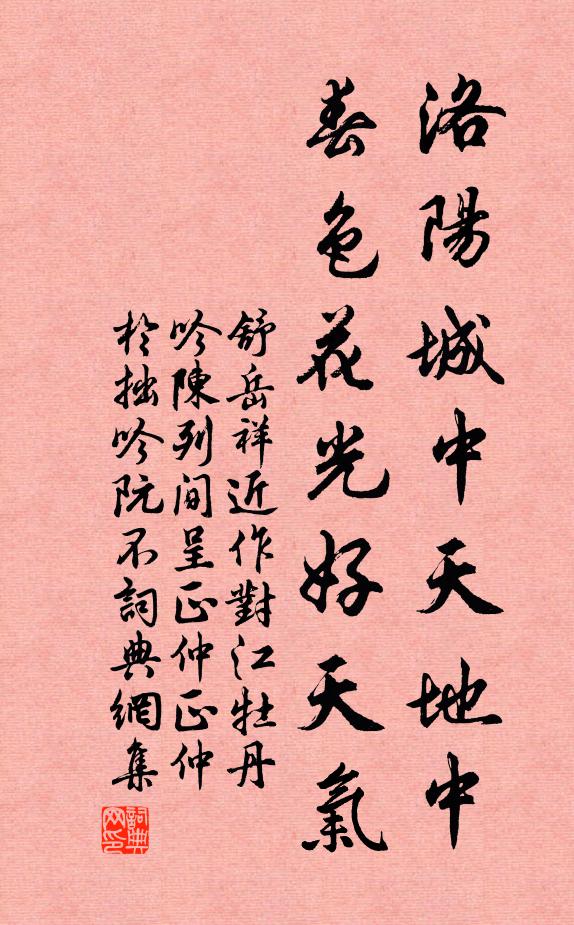 洛陽城中天地中
春色花光好天氣
舒岳祥近作對江牡丹
吟陳列間呈正仲正仲
於拙吟阮不詞典網集
詞典网印